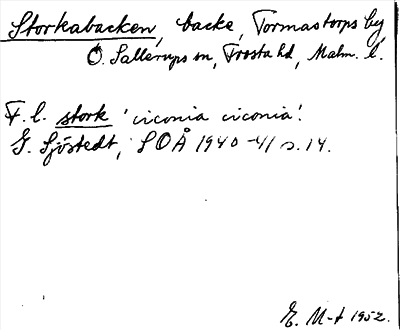 Storkabacken, backe, Tormastorps by,
Ö. Sallerups sn, Frosta hd, Malm. l.
F. l. stork 'ciconia ciconia'.
G. Sjöstedt, SOÅ 1940-41 s. 14.
E. M-t 1952.